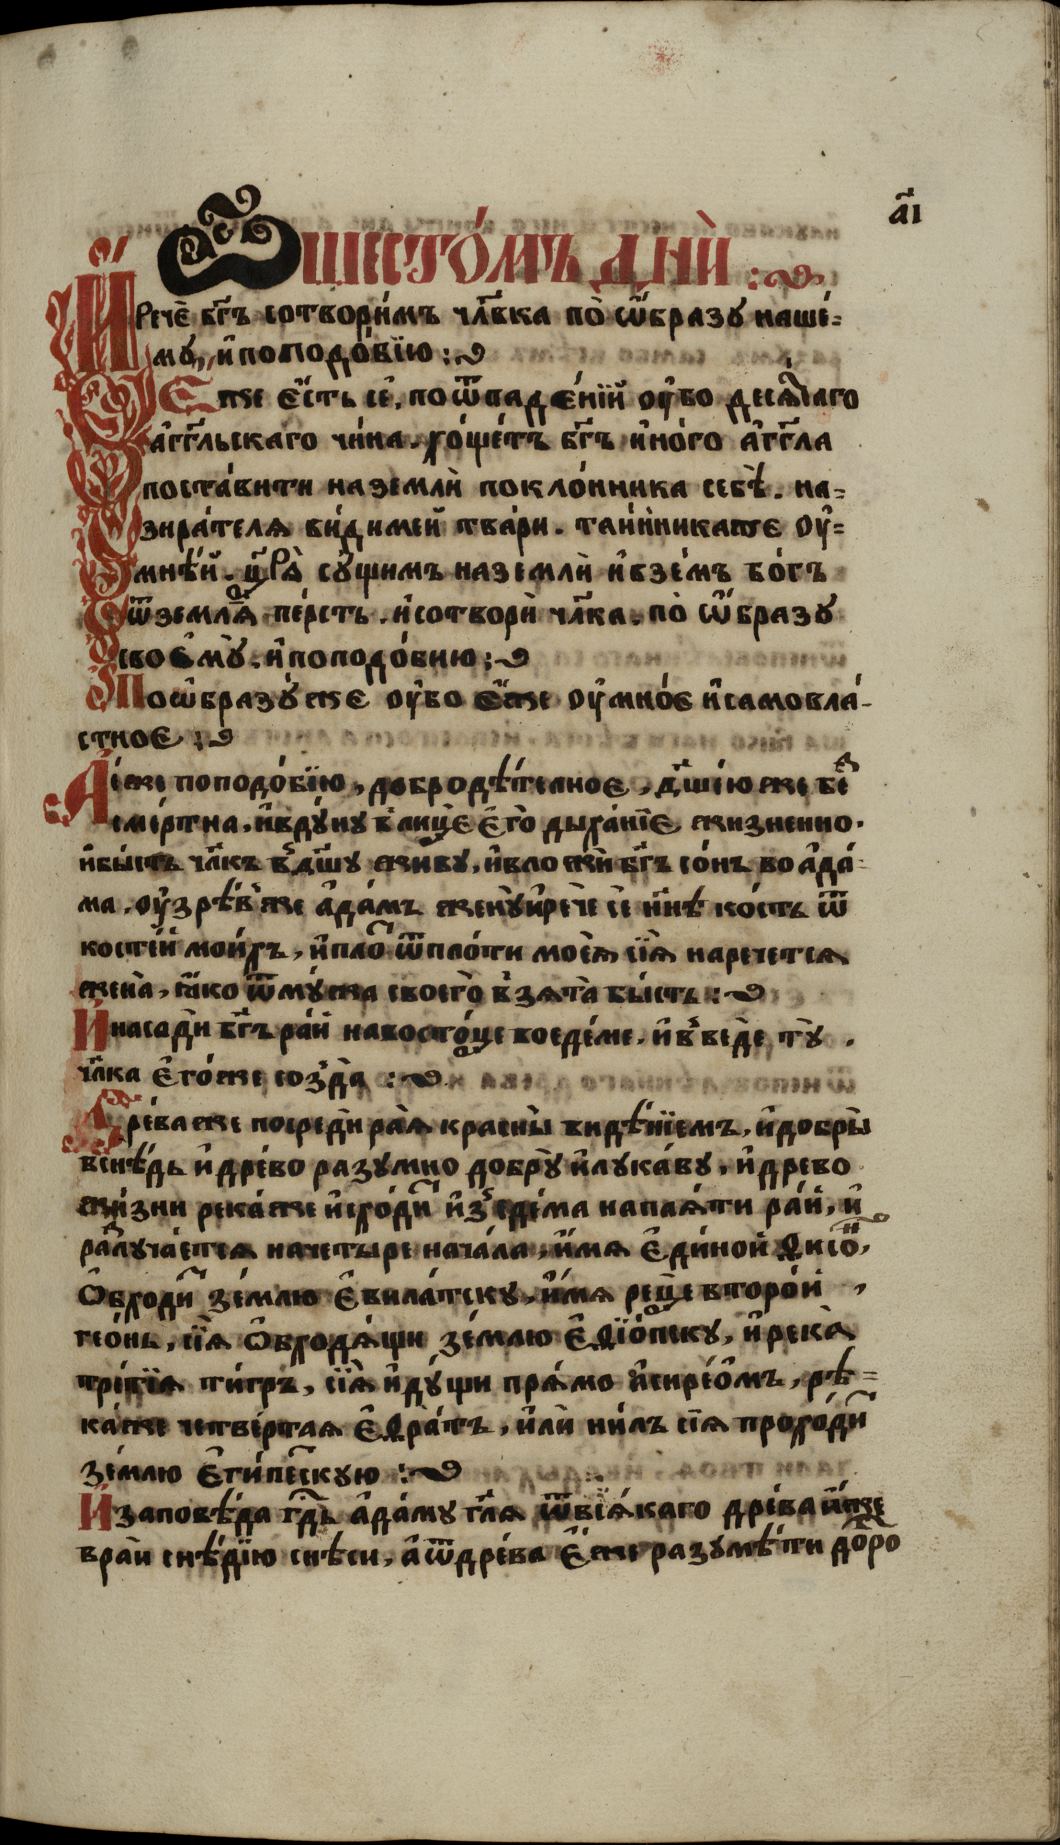 а҃і
Ѽ шесто́мъ днѝ :
И҆ речѐ бг҃ъ сотвори́мъ чл҃вка по̀ ѡ҆́бразу наше́=
му, и҆ поподо́бїю :
Є҆́же є҆́сть сѐ, по ѿпаде́нїи оу҆́бо деся́таго
а҆́гг҃льскаго чи́на. хо́щетъ бг҃ъ и҆но́го а҆́гг҃ла
поста́вити на землѝ покло́нника себѣ̀. на=
зира́теля ви́димей тва́ри. таи́нникаже оу҆́=
мнѣ́й. цр҃ѧ̀ су́щимъ на землѝ и҆ взе́мъ бо́гъ
ѿ землѧ̀ пе́рсть. и҆ сотворѝ чл҃ка. по̀ ѡ҆́бразу
своє҆мꙋ̀. и҆ поподо́бию :
По ѡ҆́бразу́ же оу҆́бо є҆́же оу҆́мно́е и҆ самовла́-
стное :
А҆ е́же поподо́бїю, добродѣ́телное, дш҃е́ю же бе́з
сме́ртна, и҆ вду́ну в лицѐ є҆го̀ дыха́нїе жизненно.
и҆ бы́сть чл҃къ в дш҃у живу, и҆ вложѝ бг҃ъ со́нъ во а҆да́-
ма. оу҆зрѣ́в же а҆да́мъ жену̀ и҆ речѐ сѐ н҃нѣ ко́сть ѿ
косте́й мои́хъ, и҆ пло́т ѿ пло́ти моеѧ̀ сїѧ̀ наречетсѧ
жена̀, ꙗ҆́ко ѿ му́жа своего̀ взѧта̀ бы́сть :
И҆ насадѝ бг҃ъ ра́й на восто́це во еде́ме. и҆ введѐ ту̀ .
чл҃ка є҆го́же созда̀ :
Дре́ва же посредѝ ра́ѧ красны̀ видѣ́нїемъ, и҆ добры̀
в снѣ́дь и҆ дре́во разумно добру̀ и҆ лука́ву, и҆ древо
жи́зни река́ же и҆схо́дит и҆з є҆де́ма напаѧ́ти ра́й, и҆
разлуча́етсѧ на четы́ре нача́ла, и҆́мѧ є҆ди́ной ѳисо́н,
Ѻ҆бхо́дит зе́млю є҆вила́тску, и҆́мѧ рецѐ второ́й ,
гео́нь, сїѧ̀ ѻ҆бходѧ́щи зе́млю є҆ѳїо́пску, и҆ река̀
тре́тїѧ ти́гръ, сїѧ̀ и҆ду́щи прѧ́мо а҆сирео́мъ, рѣ-
ка́ же четве́ртаѧ є҆ѳра́тъ, и҆лѝ ни́лъ сїѧ прохо́дит
зе́млю є҆ги́пескую :
И҆ заповѣ́да гд҃ь а҆да́му гл҃ѧ ѿ всѧ́каго дре́ва и҆́же
в раѝ снѣ́дїю снѣ́си, а҆ ѿ дре́ва є҆́же разумѣ́ти добро